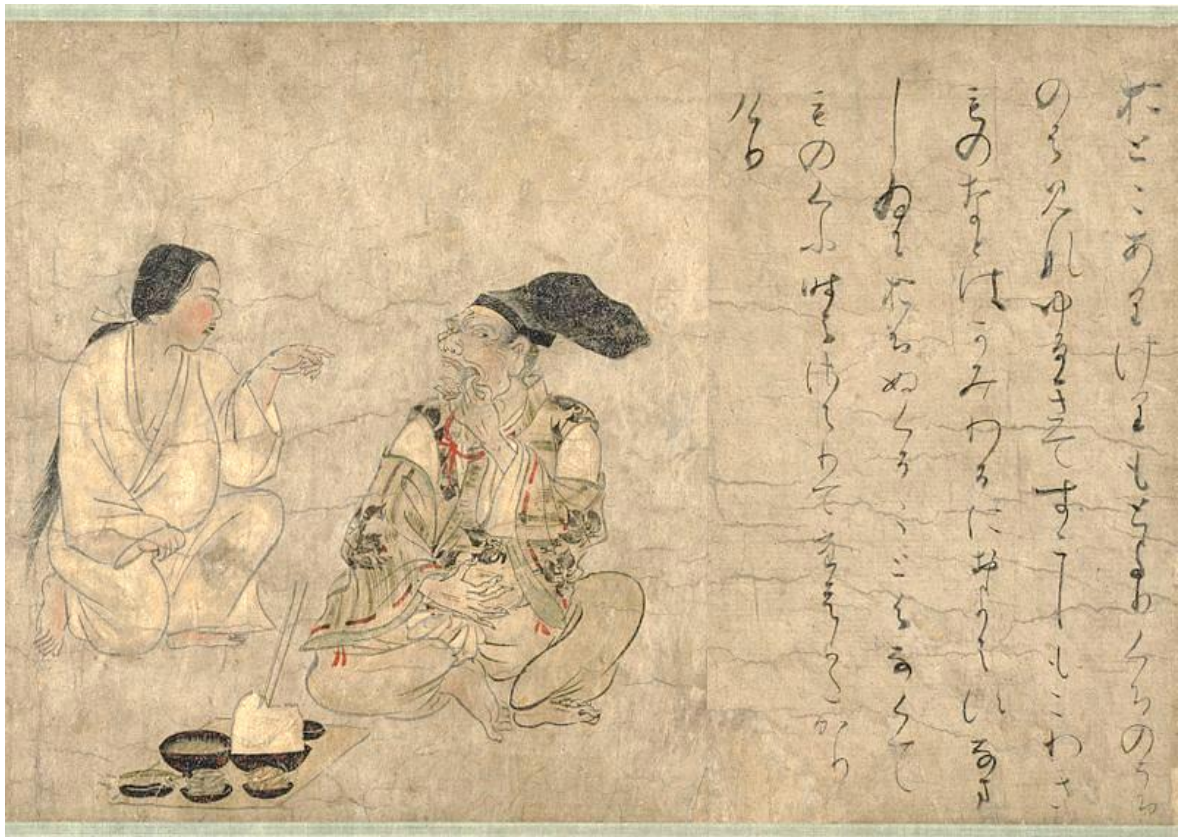 おとこありけりもとよりくちのうち
のは見なゆるきてすこしもこわき
ものなとはかみわるにおよはすなま
しゐにおちぬくることはなくて
ものくふ時はさはりてたえかたかり
けり